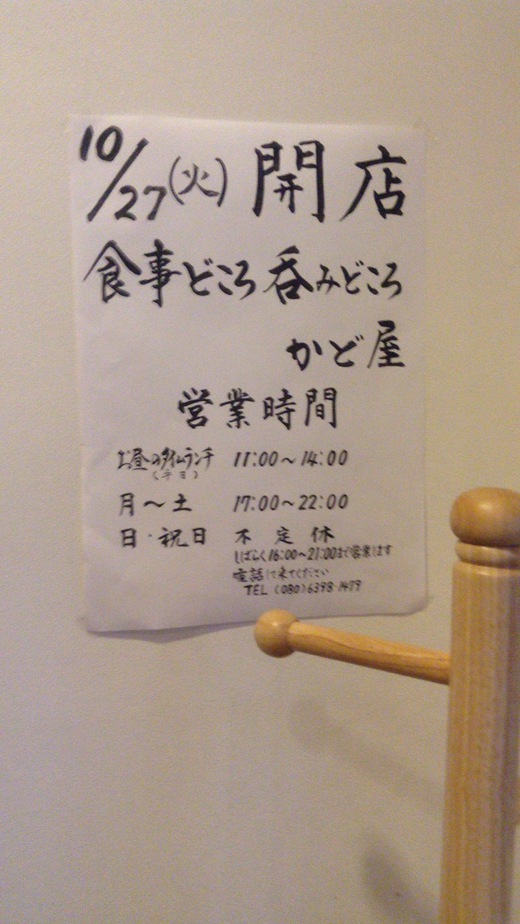 10/27(火) 開店
食事どころ 呑みどころ
かど屋
営業時間
お昼のタイムランチ 11:00〜14:00
(平日)
月〜土 17:00〜22:00
日・祝日 不定休
しばらく16:00〜21:00まで営業します
電話して来てください
TEL (080)6398-1479